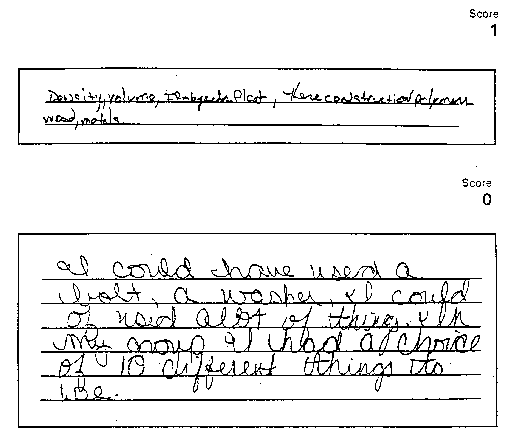 Score
1
Density, volume, Plast, these construction polymers
wood, metals
Score
0
I could have used a
bolt, a washer, I could
of used alot of things. In
my group I had a choice
of 10 different things to
use.